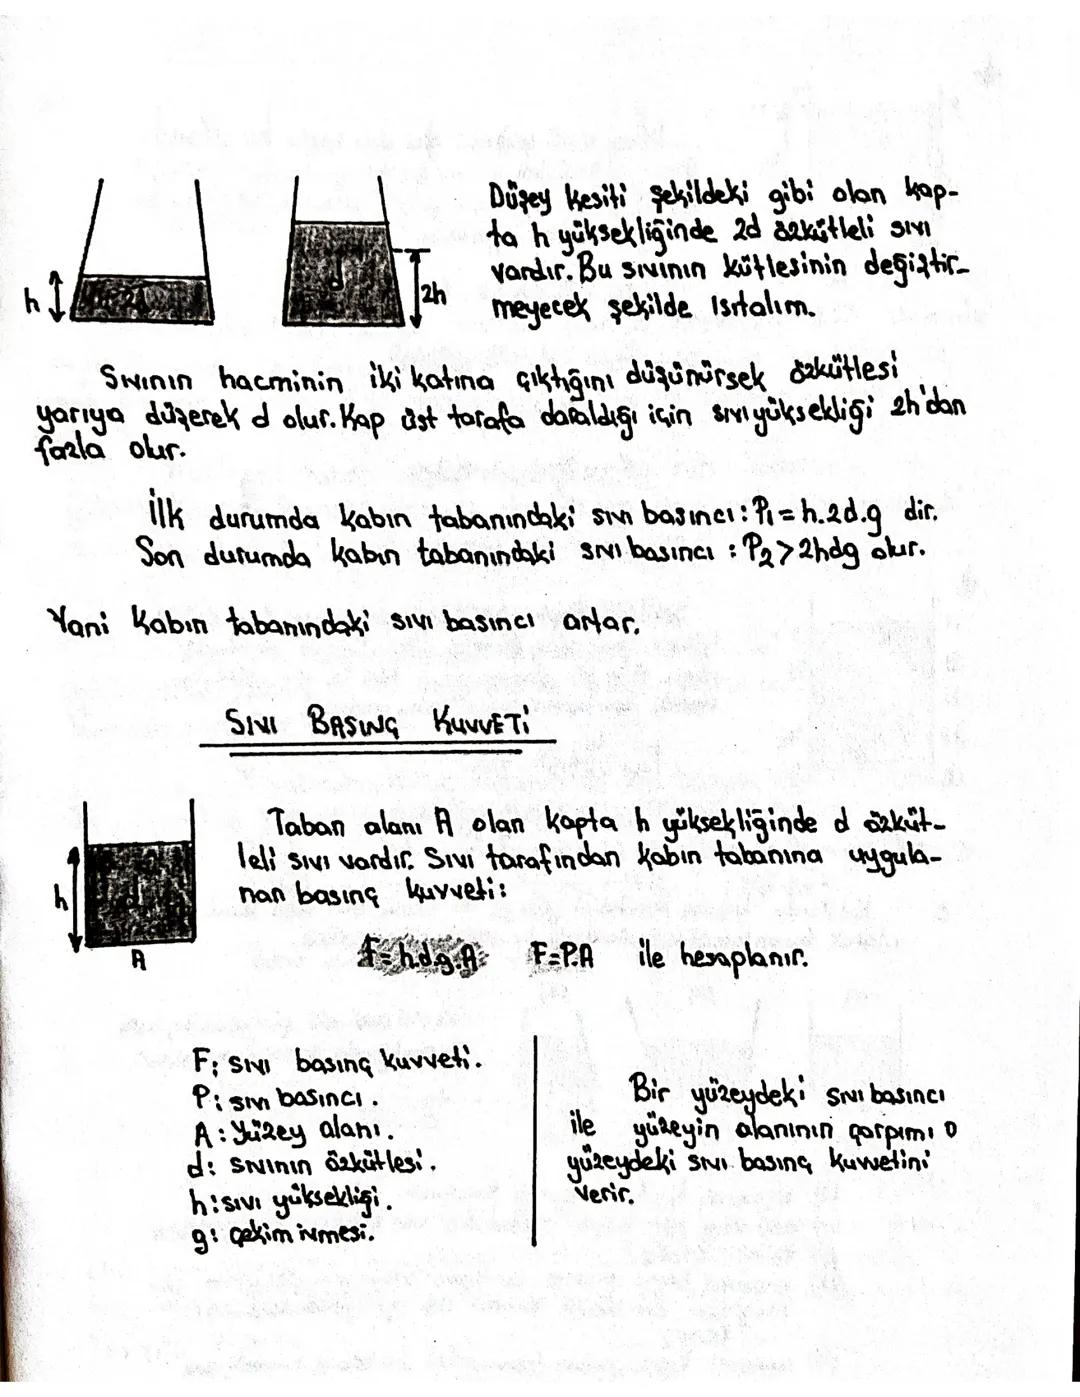 Düşey kesiti şekildeki gibi olan kap-
ta h yüksekliğinde 2d özkütleli sıvı
vardır. Bu sıvının kütlesinin değiştir-
meyecek şekilde Isıtalım.
h 2d
d 2h
Sıvının hacminin iki katına çıktığını düşünürsek özkütlesi
yarıya düşerek d olur. Kap üst tarafa daraldığı için sıvı yüksekliği 2h'dan
fazla olur.
İlk durumda kabın tabanındaki sıvı basıncı: P₁ = h.2d.g dir.
Son durumda kabın tabanındaki sıvı basıncı : P₂ > 2hdg olur.
Yani kabın tabanındaki sıvı basıncı artar.
SIVI BASINÇ KUVVETİ
Taban alanı A olan kapta h yüksekliğinde d özküt-
leli sıvı vardır. Sıvı tarafından kabın tabanına uygula-
nan basınç kuvveti:
h d
A
F=h.d.g.A F=P.A ile hesaplanır.
F: sıvı basınç kuvveti.
P: sıvı basıncı.
A: Yüzey alanı.
d: sıvının özkütlesi.
h: sıvı yüksekliği.
g: çekim ivmesi.
Bir yüzeydeki sıvı basıncı
ile yüzeyin alanının çarpımı o
yüzeydeki sıvı basınç kuvvetini
verir.